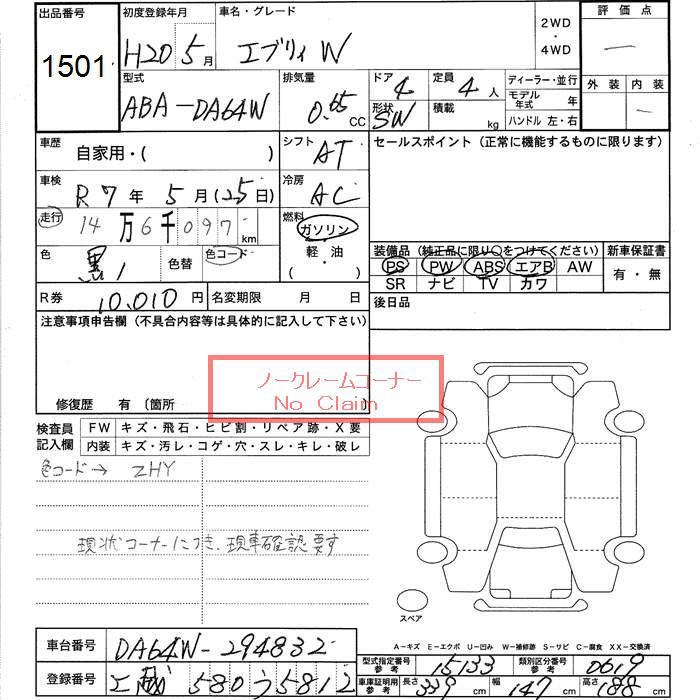 出品番号 初度登録年月 車名・グレード 2WD ・ 4WD 評価点
1501 H20 5月 エブリィ W —
型式 排気量 ドア 4 定員 4人 ディーラー・並行 外装 内装
ABA-DA64W 0.65 CC 形状 SW 積載 kg モデル年式 年 —
ハンドル 左・右
車歴 自家用・( ) シフト AT セールスポイント（正常に機能するものに限ります）
車検 R7年 5月(25日) 冷房 AC
走行 14万6千097km 燃料 ガソリン ・ 軽油 ( ・ )
色 黒 色替 色コード 装備品（純正品に限り○をつけてください） 新車保証書
PS PW ABS エアB AW 有・無
SR ナビ TV カワ
R券 10,010円 名変期限 月 日 後日品
注意事項申告欄（不具合内容等は具体的に記入して下さい）
ノークレームコーナー
No Claim
修復歴 有〔箇所
検査員記入欄 FW キズ・飛石・ヒビ割・リペア跡・X要
内装 キズ・汚レ・コゲ・穴・スレ・キレ・破レ
色コード→ ZHY
現状コーナーにつき、現車確認要す
スペア
A-キズ E-エクボ U-凹み W-補修跡 S-サビ C-腐食 XX-交換済
車台番号 DA64W-294832 型式指定番号 参考 15133 類別区分番号 参考 0619
登録番号 580 う 5812 車庫証明用 参考 長さ 339cm 幅 147cm 高さ 188cm